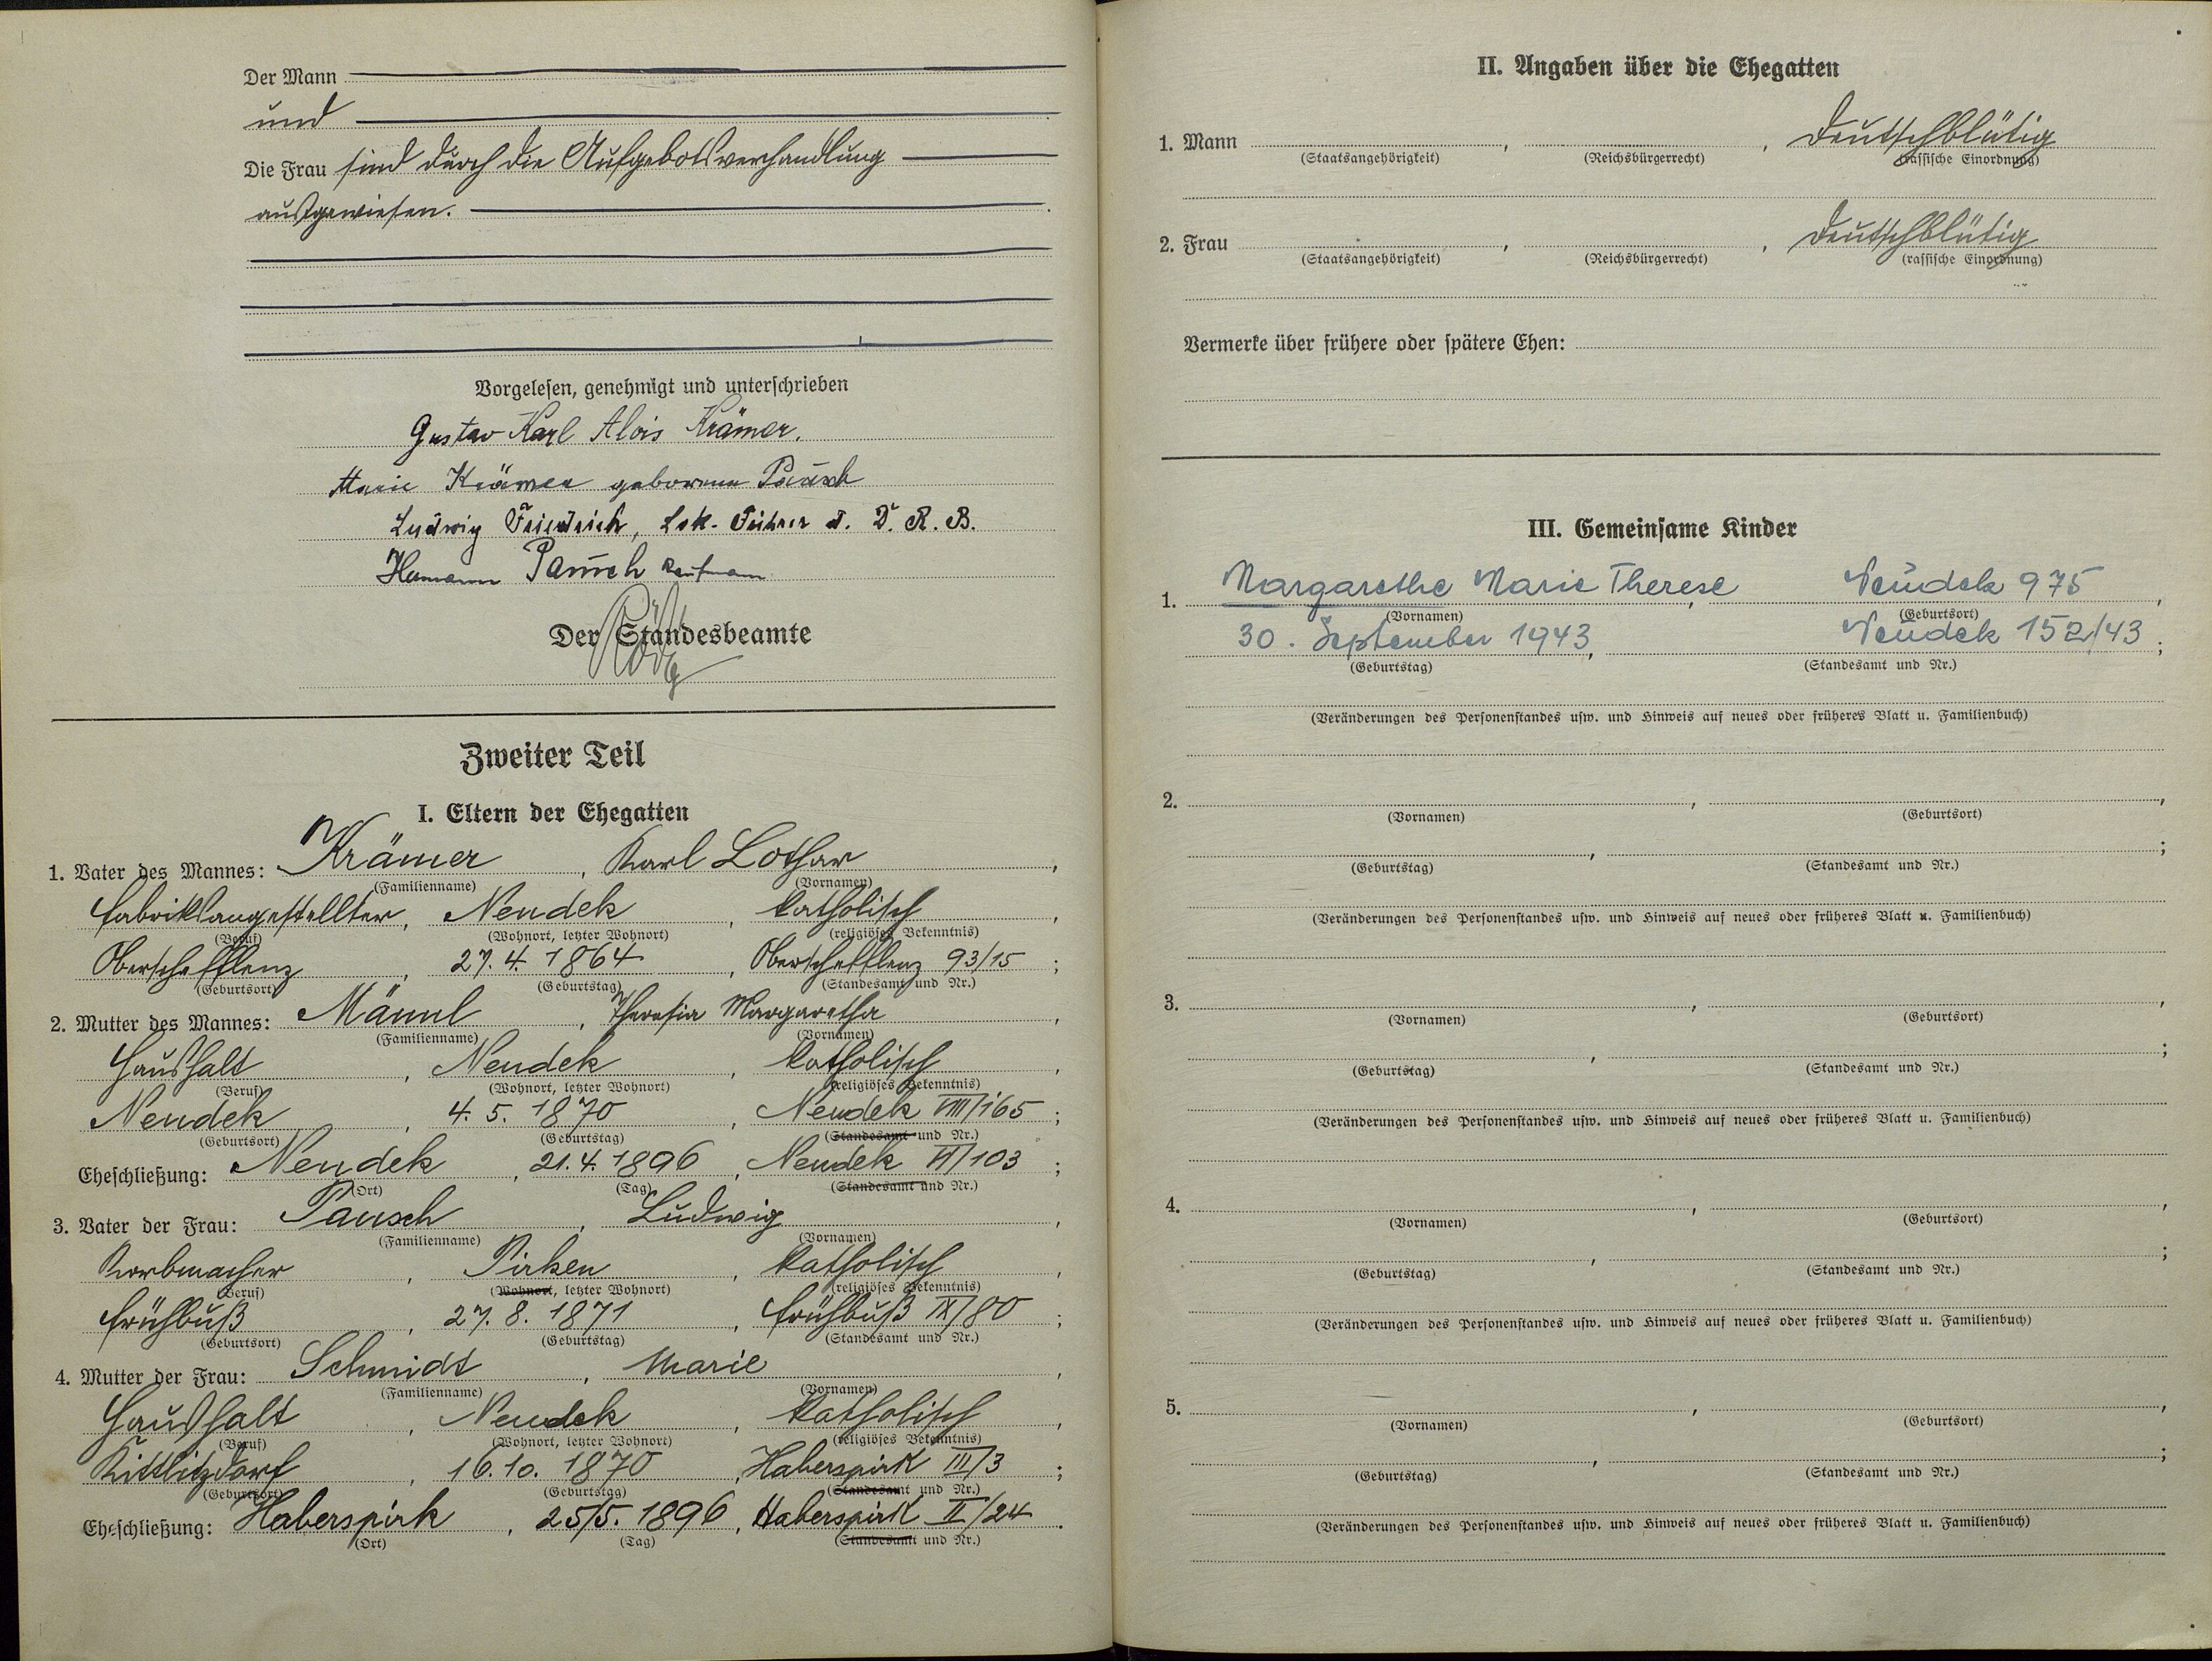 Der Mann
und
Die Frau sind durch die Aufgebotsverhandlung
ausgewiesen.
Vorgelesen, genehmigt und unterschrieben
Gustav Karl Alois Krämer.
Marie Krämer geborene Pausch
Ludwig Friedrich, Lok. Führer d. D. R. B.
Hermann Pausch Kaufmann
Der Standesbeamte
Zweiter Teil
I. Eltern der Ehegatten
1. Vater des Mannes: Krämer, Karl Lothar,
(Familienname) (Vornamen)
Fabriksangestellter, Neudek, katholisch,
(Beruf) (Wohnort, letzter Wohnort) (religiöses Bekenntnis)
Oberschefflenz, 27. 4. 1864, Oberschefflenz 93/15;
(Geburtsort) (Geburtstag) (Standesamt und Nr.)
2. Mutter des Mannes: Männl, Theresia Margaretha,
(Familienname) (Vornamen)
Haushalt, Neudek, katholisch,
(Beruf) (Wohnort, letzter Wohnort) (religiöses Bekenntnis)
Neudek, 4. 5. 1870, Neudek VIII/165;
(Geburtsort) (Geburtstag) (Standesamt und Nr.)
Eheschließung: Neudek, 21. 4. 1896, Neudek VI/103;
(Ort) (Tag) (Standesamt und Nr.)
3. Vater der Frau: Pausch, Ludwig,
(Familienname) (Vornamen)
Korbmacher, Pirken, katholisch,
(Beruf) (Wohnort, letzter Wohnort) (religiöses Bekenntnis)
Frühbuß, 27. 8. 1871, Frühbuß IX/80;
(Geburtsort) (Geburtstag) (Standesamt und Nr.)
4. Mutter der Frau: Schmidt, Marie,
(Familienname) (Vornamen)
Haushalt, Neudek, katholisch,
(Beruf) (Wohnort, letzter Wohnort) (religiöses Bekenntnis)
Kittlitzdorf, 16. 10. 1870, Haberspirk III/3;
(Geburtsort) (Geburtstag) (Standesamt und Nr.)
Eheschließung: Haberspirk, 25/5. 1896, Haberspirk II/24.
(Ort) (Tag) (Standesamt und Nr.)
II. Angaben über die Ehegatten
1. Mann , , Deutschblütig
(Staatsangehörigkeit) (Reichsbürgerrecht) (rassische Einordnung)
2. Frau , , Deutschblütig
(Staatsangehörigkeit) (Reichsbürgerrecht) (rassische Einordnung)
Vermerke über frühere oder spätere Ehen:
III. Gemeinsame Kinder
1. Margarethe Marie Therese, Neudek 975,
(Vornamen) (Geburtsort)
30. September 1943, Neudek 152/43;
(Geburtstag) (Standesamt und Nr.)
(Veränderungen des Personenstandes usw. und Hinweis auf neues oder früheres Blatt u. Familienbuch)
2. , ,
(Vornamen) (Geburtsort)
, ;
(Geburtstag) (Standesamt und Nr.)
(Veränderungen des Personenstandes usw. und Hinweis auf neues oder früheres Blatt u. Familienbuch)
3. , ,
(Vornamen) (Geburtsort)
, ;
(Geburtstag) (Standesamt und Nr.)
(Veränderungen des Personenstandes usw. und Hinweis auf neues oder früheres Blatt u. Familienbuch)
4. , ,
(Vornamen) (Geburtsort)
, ;
(Geburtstag) (Standesamt und Nr.)
(Veränderungen des Personenstandes usw. und Hinweis auf neues oder früheres Blatt u. Familienbuch)
5. , ,
(Vornamen) (Geburtsort)
, ;
(Geburtstag) (Standesamt und Nr.)
(Veränderungen des Personenstandes usw. und Hinweis auf neues oder früheres Blatt u. Familienbuch)